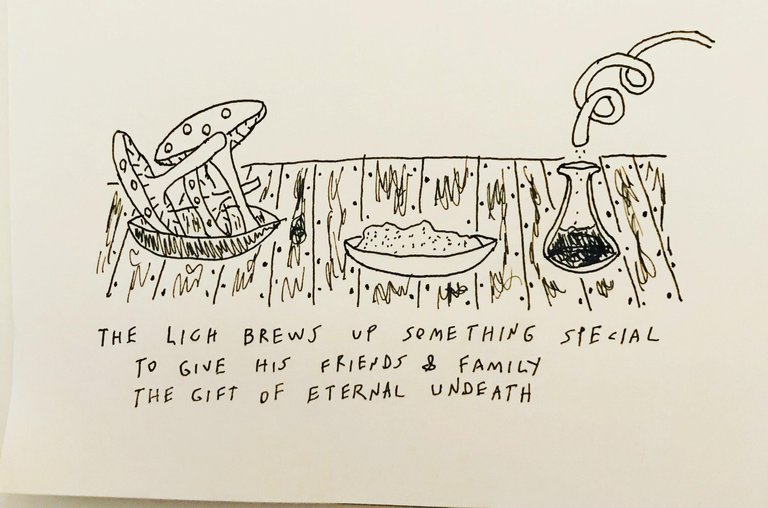 THE LICH BREWS UP SOMETHING SPECIAL
TO GIVE HIS FRIENDS & FAMILY
THE GIFT OF ETERNAL UNDEATH